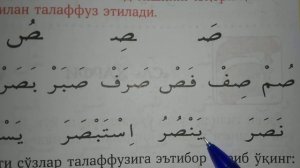 илан талаффуз этилади.
صَ صِ صُ
صُمْ صِفْ فَصْ صَرَفْ صَبَرْ بَصَرْ
نَصَرَ يَنْصُرُ اِسْتَبْصَرَ
сўзлар талаффузига эътибор ўқинг: